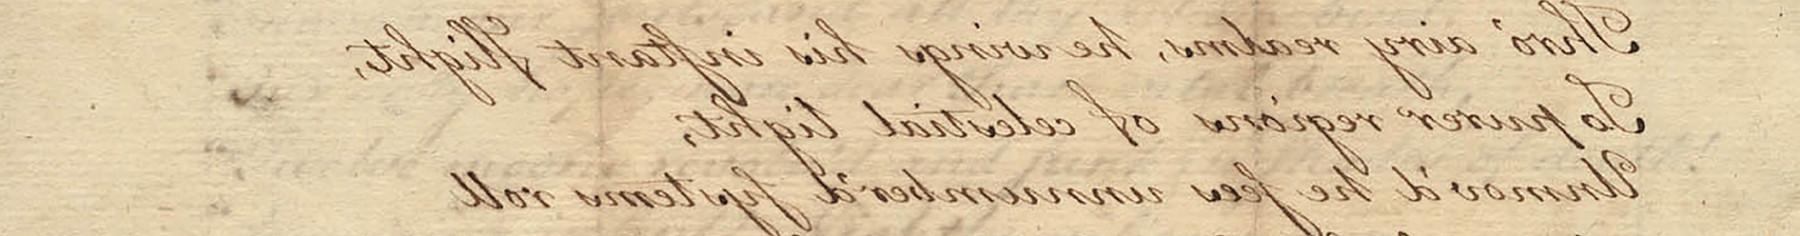 Thro' airy realms, he wings his inſtant flight,
To purer regions of celestial light;
Unmov'd he ſees unnumber'd ſystems roll